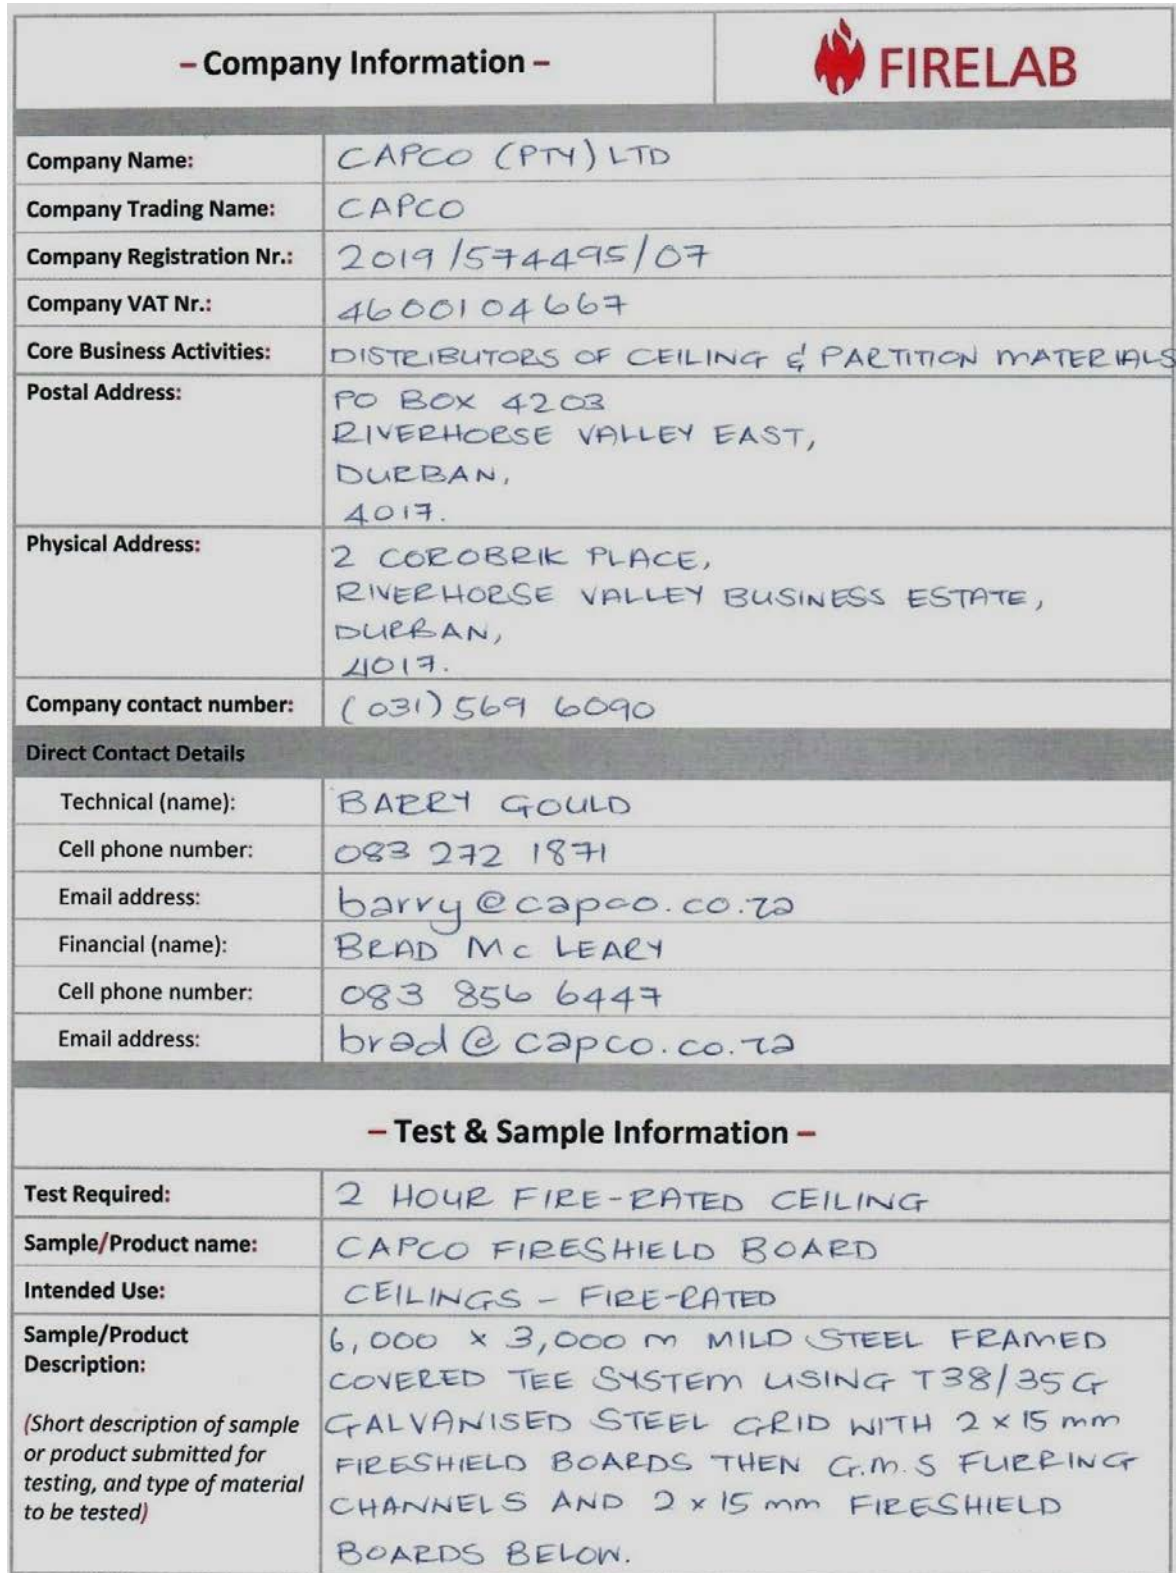 – Company Information –
FIRELAB
Company Name: CAPCO (PTY) LTD
Company Trading Name: CAPCO
Company Registration Nr.: 2019/574495/07
Company VAT Nr.: 4600104667
Core Business Activities: DISTRIBUTORS OF CEILING & PARTITION MATERIALS
Postal Address: PO BOX 4203
RIVERHORSE VALLEY EAST,
DURBAN,
4017.
Physical Address: 2 COROBRIK PLACE,
RIVERHORSE VALLEY BUSINESS ESTATE,
DURBAN,
4017.
Company contact number: (031) 569 6090
Direct Contact Details
Technical (name): BARRY GOULD
Cell phone number: 083 272 1871
Email address: barry@capco.co.za
Financial (name): BRAD Mc LEARY
Cell phone number: 083 856 6447
Email address: brad@capco.co.za
– Test & Sample Information –
Test Required: 2 HOUR FIRE-RATED CEILING
Sample/Product name: CAPCO FIRESHIELD BOARD
Intended Use: CEILINGS – FIRE-RATED
Sample/Product
Description:
(Short description of sample
or product submitted for
testing, and type of material
to be tested)
6,000 x 3,000 m MILD STEEL FRAMED
COVERED TEE SYSTEM USING T38/35G
GALVANISED STEEL GRID WITH 2 x 15 mm
FIRESHIELD BOARDS THEN G.M.S FURRING
CHANNELS AND 2 x 15 mm FIRESHIELD
BOARDS BELOW.